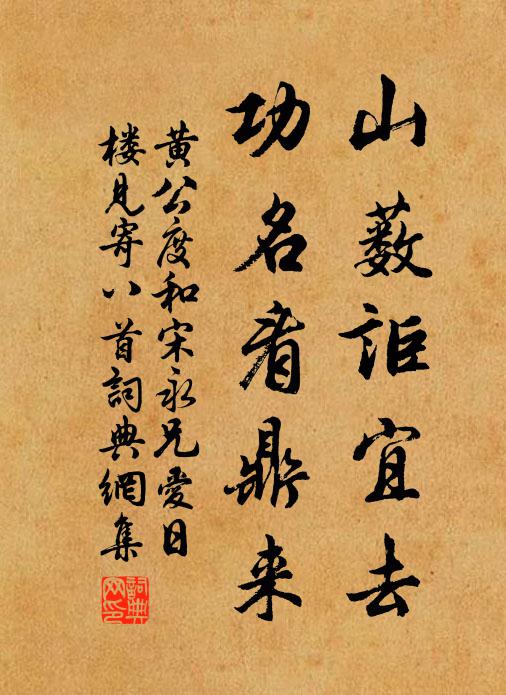 山薮讵宜去
功名看鼎来
黄公度和宋永兄爱日
楼见寄八首词典網集
詞典網印